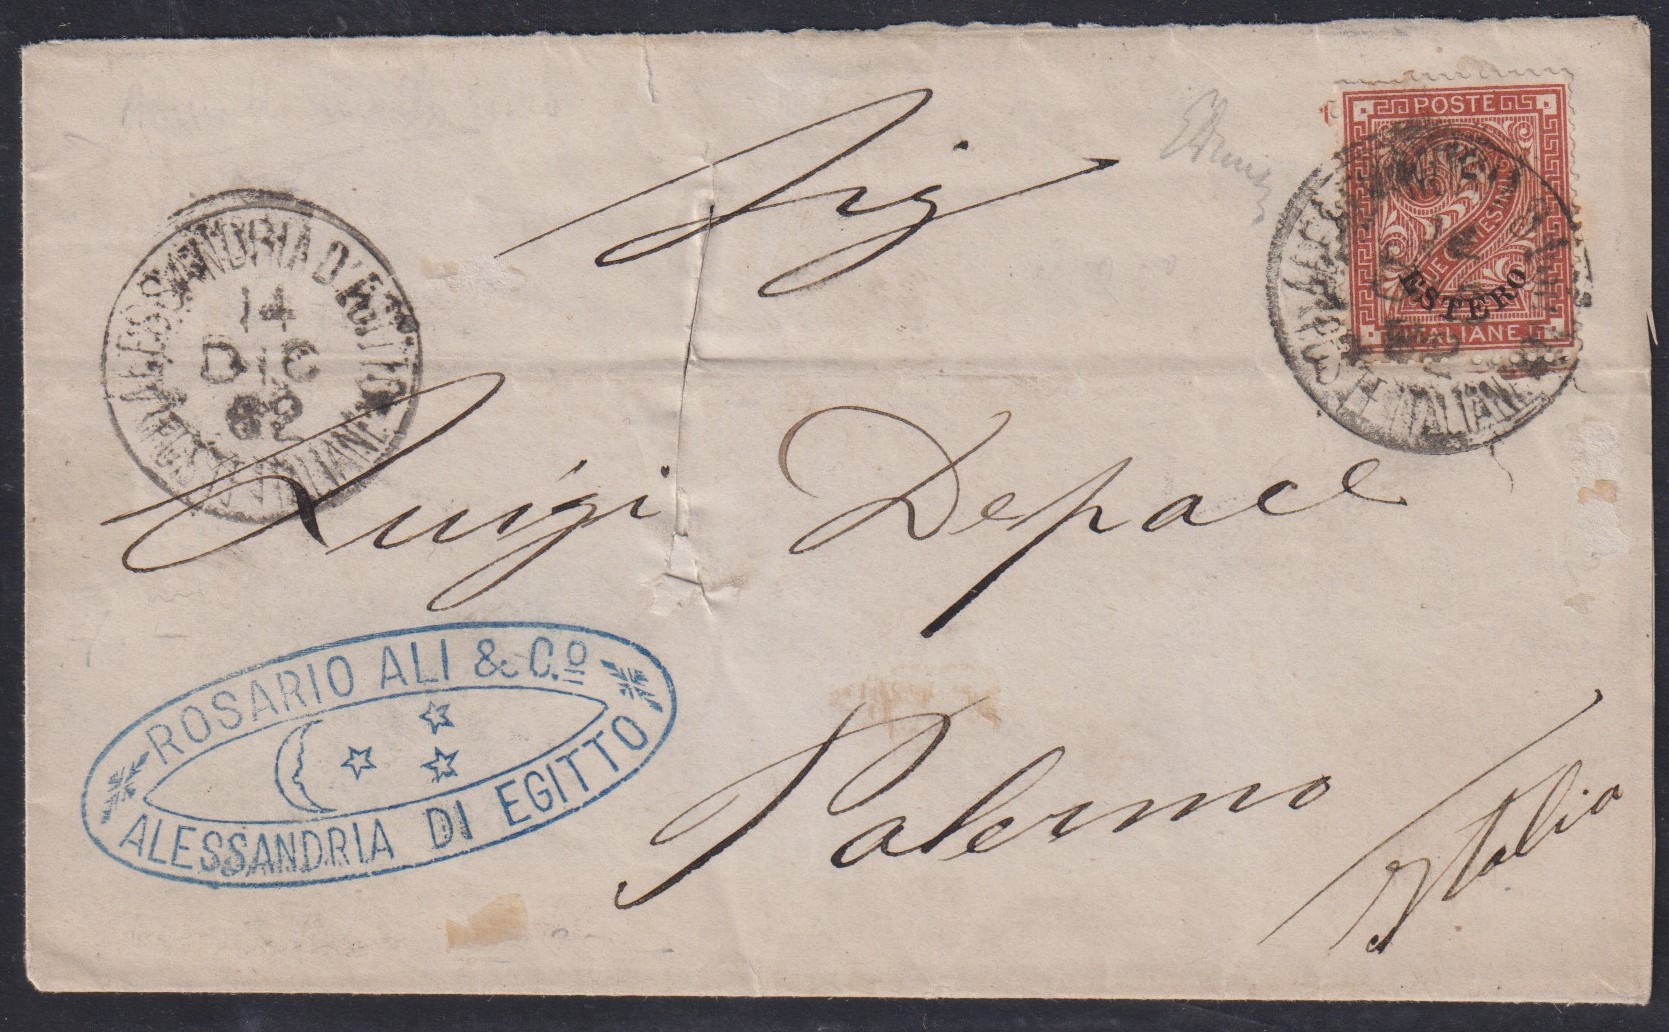 Sig
POSTE
DUE CENTESIMI
ESTERO
ITALIANE
ALESSANDRIA D'EGITTO
14
DIC
82
POSTE ITALIANE
ITALIANE
Luigi Depace
ROSARIO ALI & C.º
ALESSANDRIA DI EGITTO
Palermo
Italia